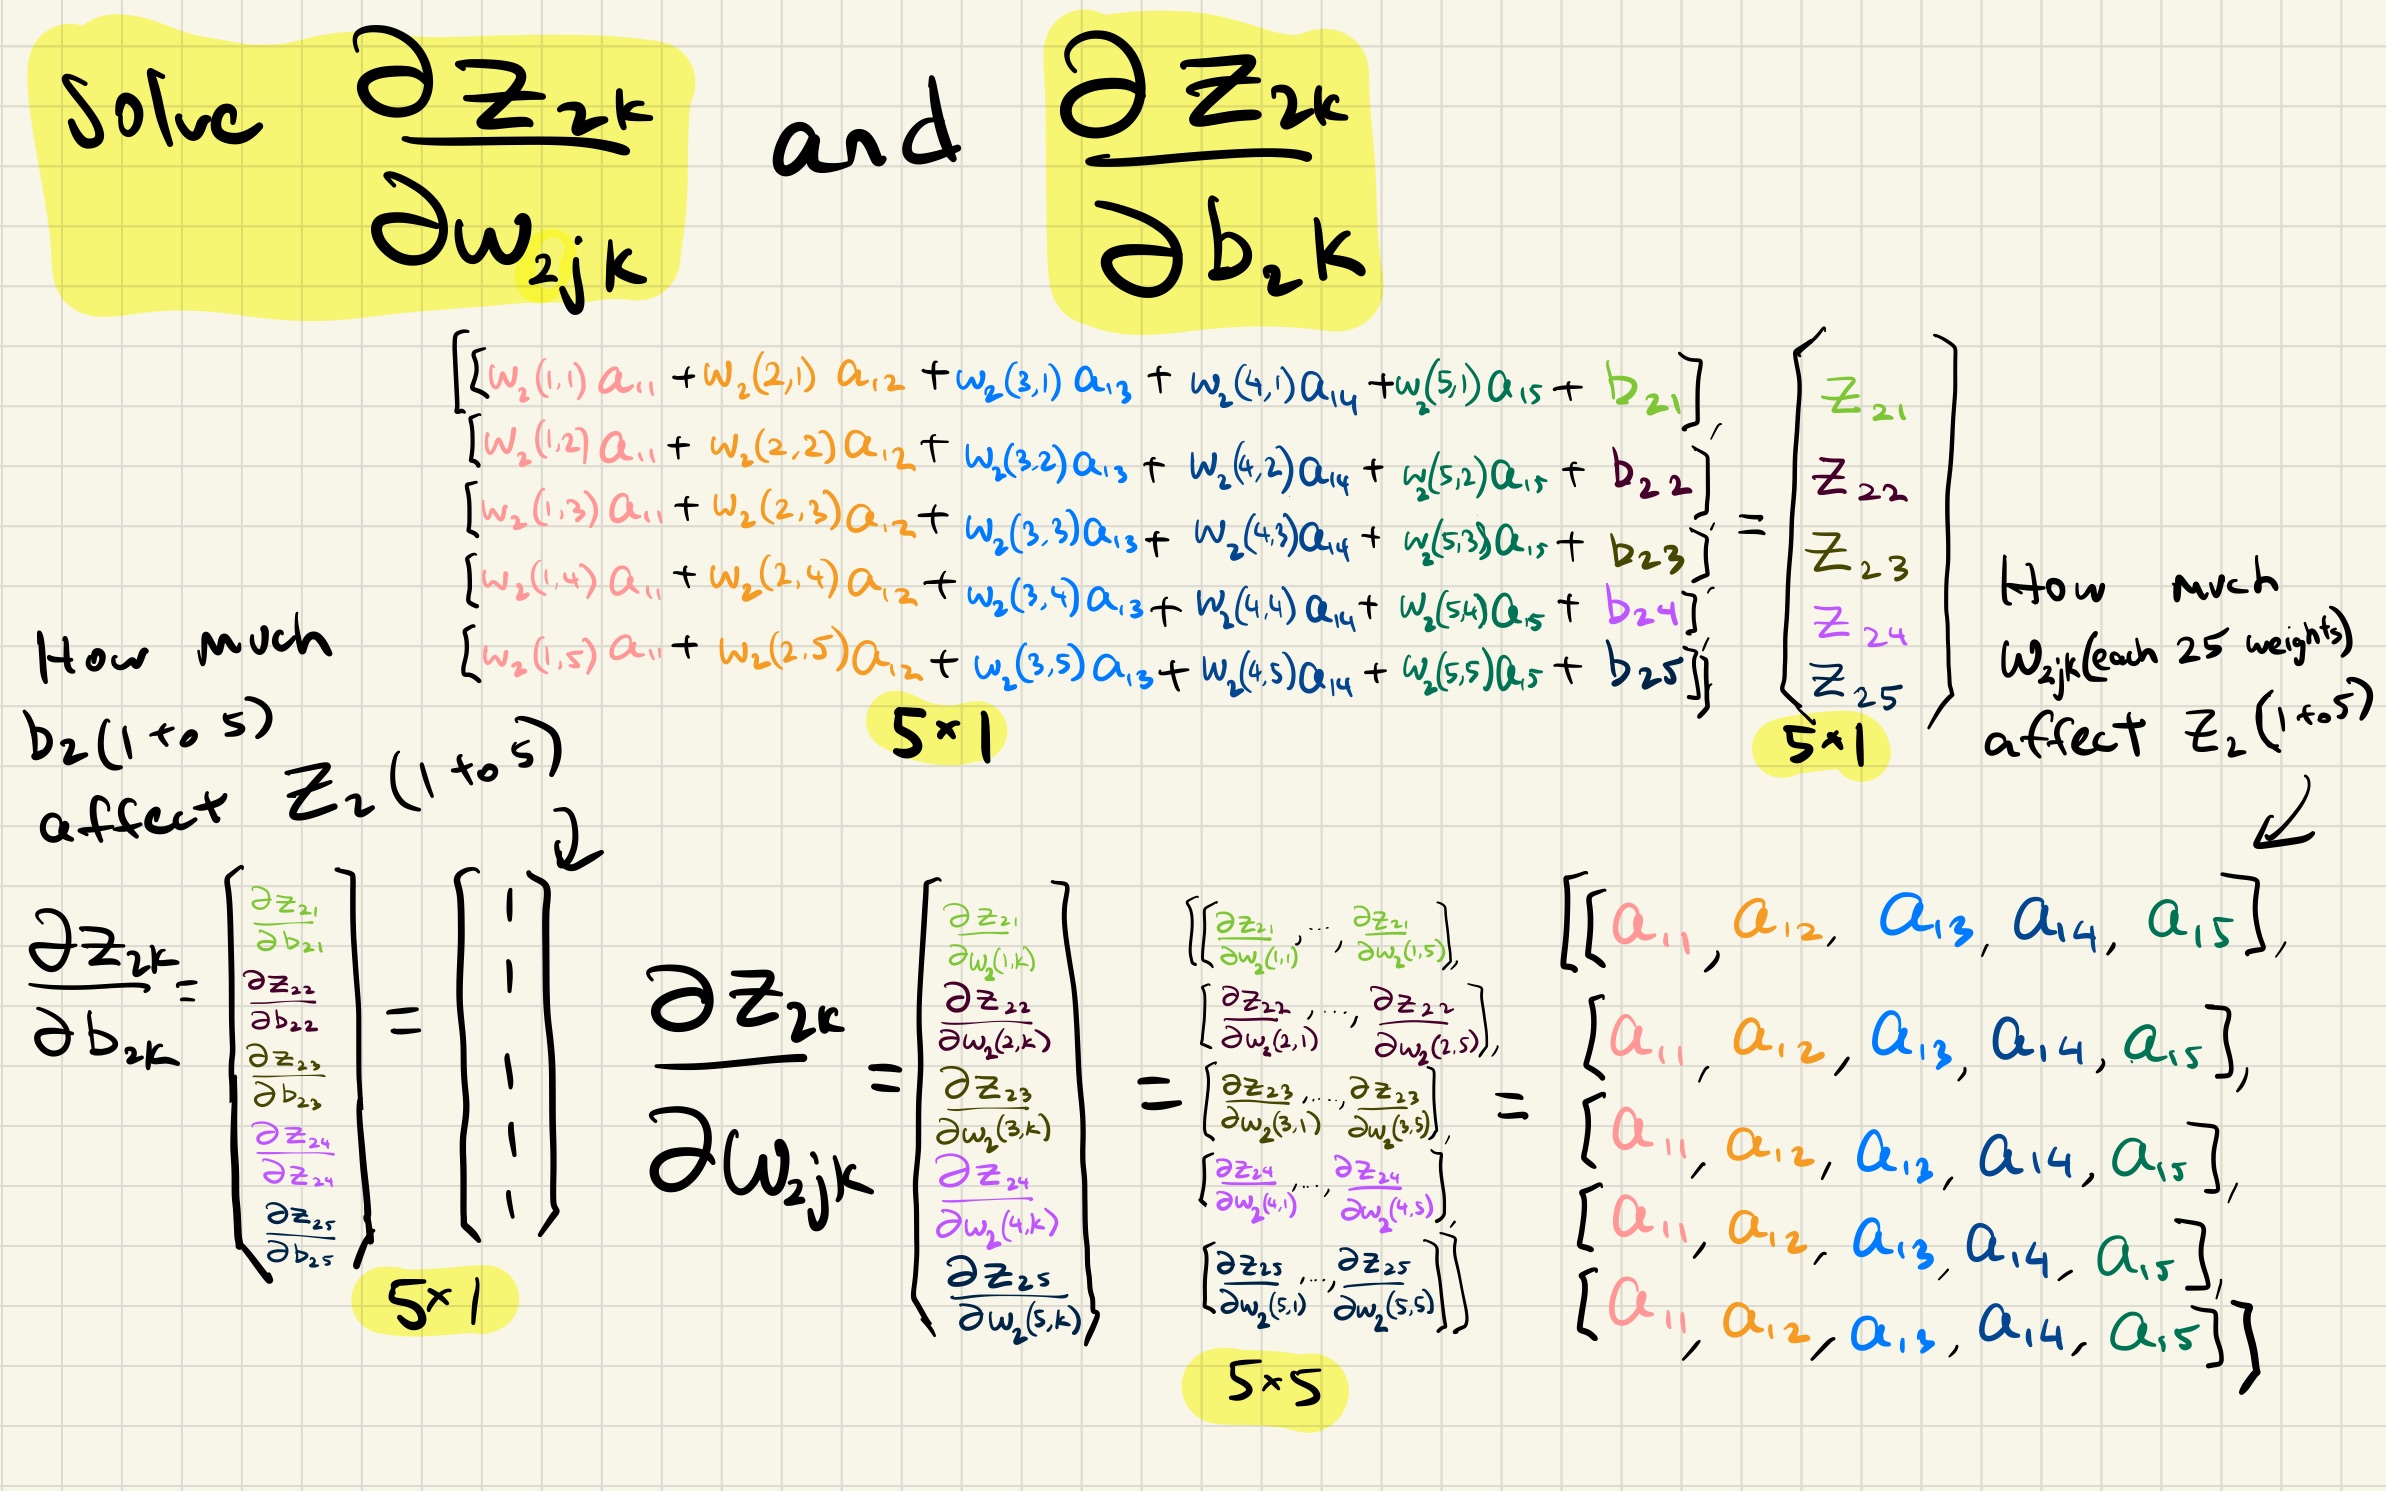 Solve ∂z₂ₖ/∂w₂ⱼₖ and ∂z₂ₖ/∂b₂k
[[w₂(1,1)a₁₁ + w₂(2,1)a₁₂ + w₂(3,1)a₁₃ + w₂(4,1)a₁₄ + w₂(5,1)a₁₅ + b₂₁],
[w₂(1,2)a₁₁ + w₂(2,2)a₁₂ + w₂(3,2)a₁₃ + w₂(4,2)a₁₄ + w₂(5,2)a₁₅ + b₂₂],
[w₂(1,3)a₁₁ + w₂(2,3)a₁₂ + w₂(3,3)a₁₃ + w₂(4,3)a₁₄ + w₂(5,3)a₁₅ + b₂₃],
[w₂(1,4)a₁₁ + w₂(2,4)a₁₂ + w₂(3,4)a₁₃ + w₂(4,4)a₁₄ + w₂(5,4)a₁₅ + b₂₄],
[w₂(1,5)a₁₁ + w₂(2,5)a₁₂ + w₂(3,5)a₁₃ + w₂(4,5)a₁₄ + w₂(5,5)a₁₅ + b₂₅]]
5×1
=
[z₂₁
z₂₂
z₂₃
z₂₄
z₂₅]
5×1
How much
b₂(1 to 5)
affect z₂(1 to 5)
How much
w₂ⱼₖ(each 25 weights)
affect z₂(1 to 5)
∂z₂ₖ/∂b₂ₖ =
[∂z₂₁/∂b₂₁
∂z₂₂/∂b₂₂
∂z₂₃/∂b₂₃
∂z₂₄/∂z₂₄
∂z₂₅/∂b₂₅]
=
[1
1
1
1
1]
5×1
∂z₂ₖ/∂w₂ⱼₖ =
[∂z₂₁/∂w₂(1,k)
∂z₂₂/∂w₂(2,k)
∂z₂₃/∂w₂(3,k)
∂z₂₄/∂w₂(4,k)
∂z₂₅/∂w₂(5,k)]
=
[[∂z₂₁/∂w₂(1,1),...,∂z₂₁/∂w₂(1,5)],
[∂z₂₂/∂w₂(2,1),...,∂z₂₂/∂w₂(2,5)],
[∂z₂₃/∂w₂(3,1),...,∂z₂₃/∂w₂(3,5)],
[∂z₂₄/∂w₂(4,1),...,∂z₂₄/∂w₂(4,5)],
[∂z₂₅/∂w₂(5,1),...,∂z₂₅/∂w₂(5,5)]]
5×5
=
[[a₁₁, a₁₂, a₁₃, a₁₄, a₁₅],
[a₁₁, a₁₂, a₁₃, a₁₄, a₁₅],
[a₁₁, a₁₂, a₁₃, a₁₄, a₁₅],
[a₁₁, a₁₂, a₁₃, a₁₄, a₁₅],
[a₁₁, a₁₂, a₁₃, a₁₄, a₁₅]]